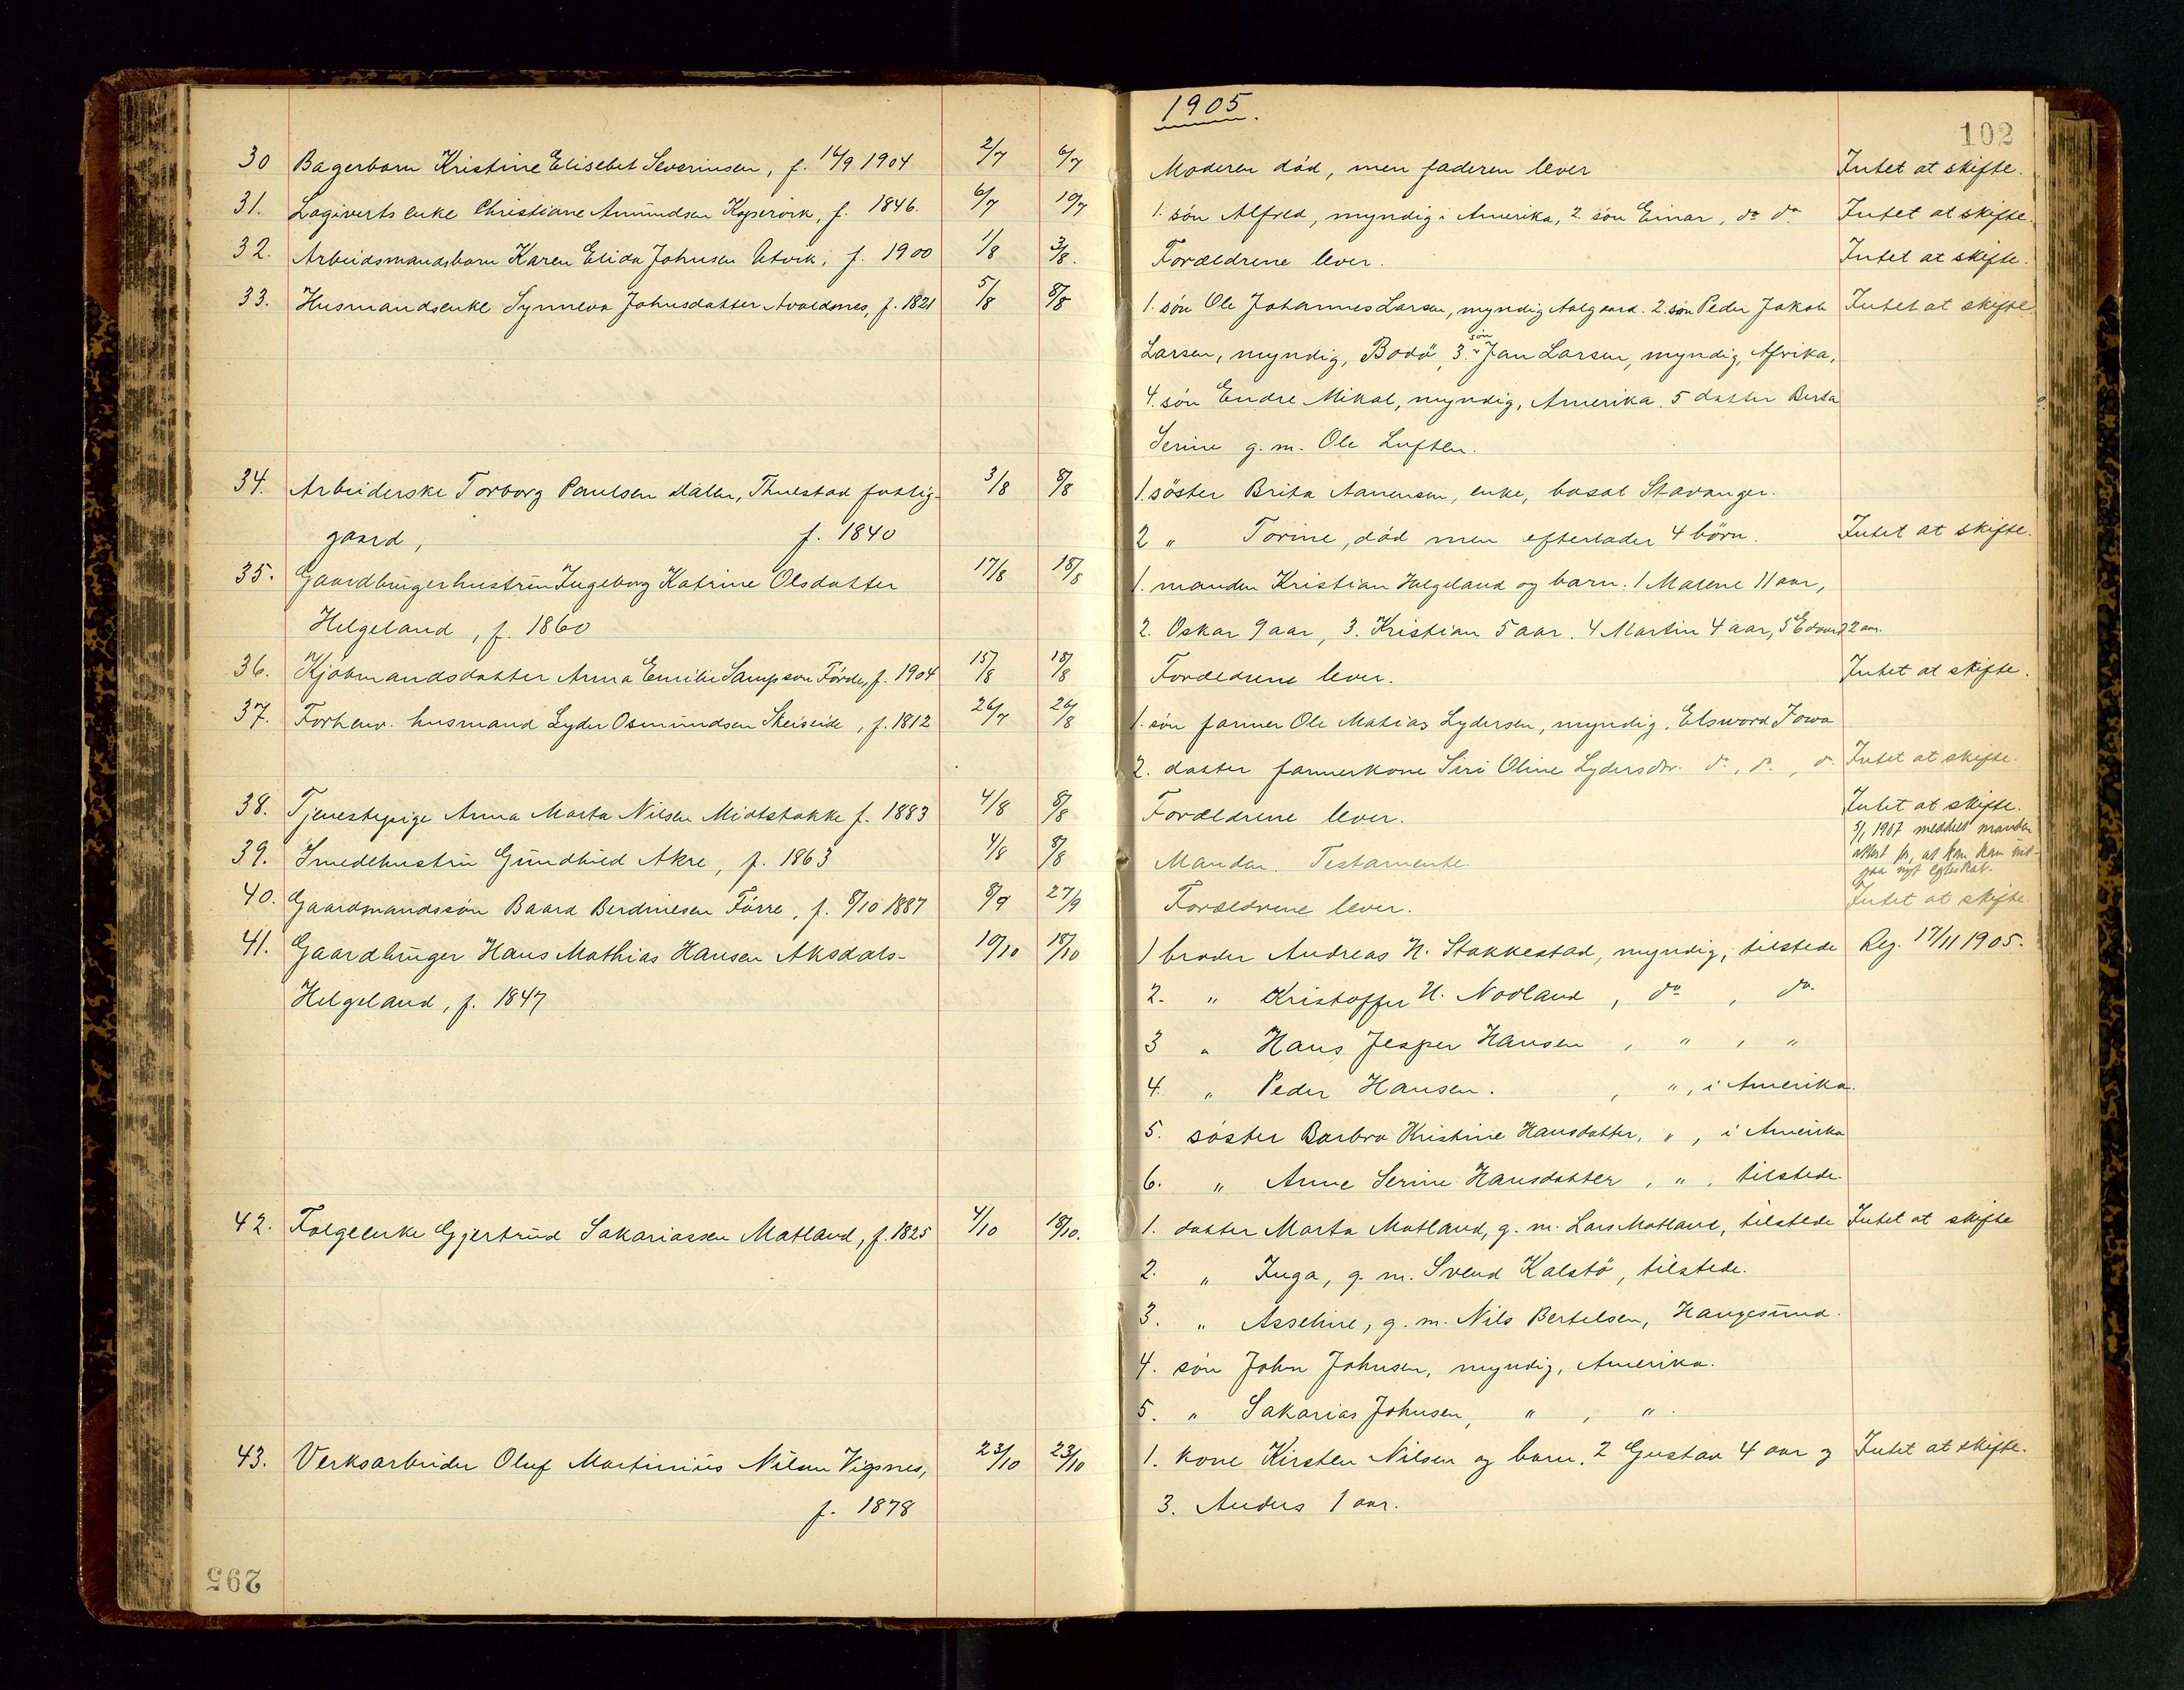 1905.
102
30 Bagerbarn Kristine Elisebet Severinsen, f. 16/9 1904 2/7 6/7 Moderen död, men faderen lever Intet at skifte.
31. Logiverts enke Christiane Amundsen Kopervik, f. 1846. 6/7 10/7 1. sön Alfred, myndig i Amerika, 2 sön Einar, do do. Intet at skifte.
32. Arbeidsmandsbarn Karen Elida Johnsen Utvik, f. 1900 1/8 3/8. Forældrene lever. Intet at skifte.
33. Husmandsenke Synneva Johnsdatter Avaldsnes, f. 1821 5/8 8/8 1. sön Ole Johannes Larsen, myndig Aalgaard. 2. sön Peder Jakob Intet at skifte
Larsen, myndig, Bodö, 3. sön Jan Larsen, myndig, Afrika,
4. sön Endre Mikal, myndig, Amerika. 5 datter Berta
Serine g. m. Ole Luften.
34. Arbeiderske Torborg Paulsen Dalen, Thuestad fattig- 3/8 8/8 1. söster Brita Aanensen, enke, bosat Stavanger.
gaard, f. 1840 2 " Torine, död men efterlader 4 börn. Intet at skifte.
35. Gaardbrugerhustru Ingeborg Katrine Olsdatter 17/8 18/8 1. manden Kristian Helgeland og barn. 1 Malene 11 aar,
Helgeland, f. 1860 2. Oskar 9 aar, 3. Kristian 5 aar. 4 Martin 4 aar, 5 Edvard 2 aar.
36. Kjöbmandsdatter Anna Emilie Sampson Förde, f. 1904 15/8 18/8 Forældrene lever. Intet at skifte.
37. Forhenv. husmand Lyder Osmundsen Skeiseide, f. 1812 26/7 26/8 1. sön farmer Ole Matias Lydersen, myndig, Elsword Iowa
2. datter farmerkone Siri Oline Lydersdtr. do, do, do. Intet at skifte.
38. Tjenestepige Anna Marta Nilsen Midtstokke f. 1883 4/8 8/8 Forældrene lever. Intet at skifte.
39. Smedehustru Gundhild Akre, f. 1863 4/8 8/8 Manden. Testamente. 5/1 1907 meddelt manden
attest for, at han kan ind-
gaa nyt egteskab.
40. Gaardmandssön Baard Berdinesen Förre, f. 8/10 1887 8/9 27/9 Forældrene lever. Intet at skifte.
41. Gaardbruger Hans Mathias Hansen Aksdals- 10/10 18/10 1 broder Andreas H. Stakkestad, myndig, tilstede Reg. 17/11 1905.
Helgeland, f. 1847 2. " Kristoffer H. Nodland, do, do.
3 " Hans Jesper Hansen, ", "
4. " Peder Hansen. , ", i Amerika.
5. söster Barbra Kristine Hansdatter, ", i Amerika
6. " Anne Serine Hansdatter, ", tilstede.
42. Folgeenke Gjertrud Sakariassen Matland, f. 1825 4/10 18/10. 1. datter Marta Matland, g. m. Lars Matland, tilstede Intet at skifte
2. " Inga, g. m. Svend Kalstö, tilstede.
3. " Asseline, g. m. Nils Bertelsen, Haugesund.
4. sön John Johnsen, myndig, Amerika.
5. " Sakarias Johnsen, ", ".
43. Verksarbeider Oluf Martinius Nilsen Vigsnes, 23/10 23/10 1. kone Kirsten Nilsen og barn. 2 Gustav 4 aar og Intet at skifte.
f. 1878 3. Anders 1 aar.
295